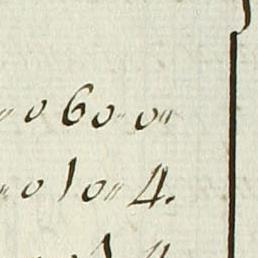 〃 0 60〃 0〃
〃 0 10〃 4.